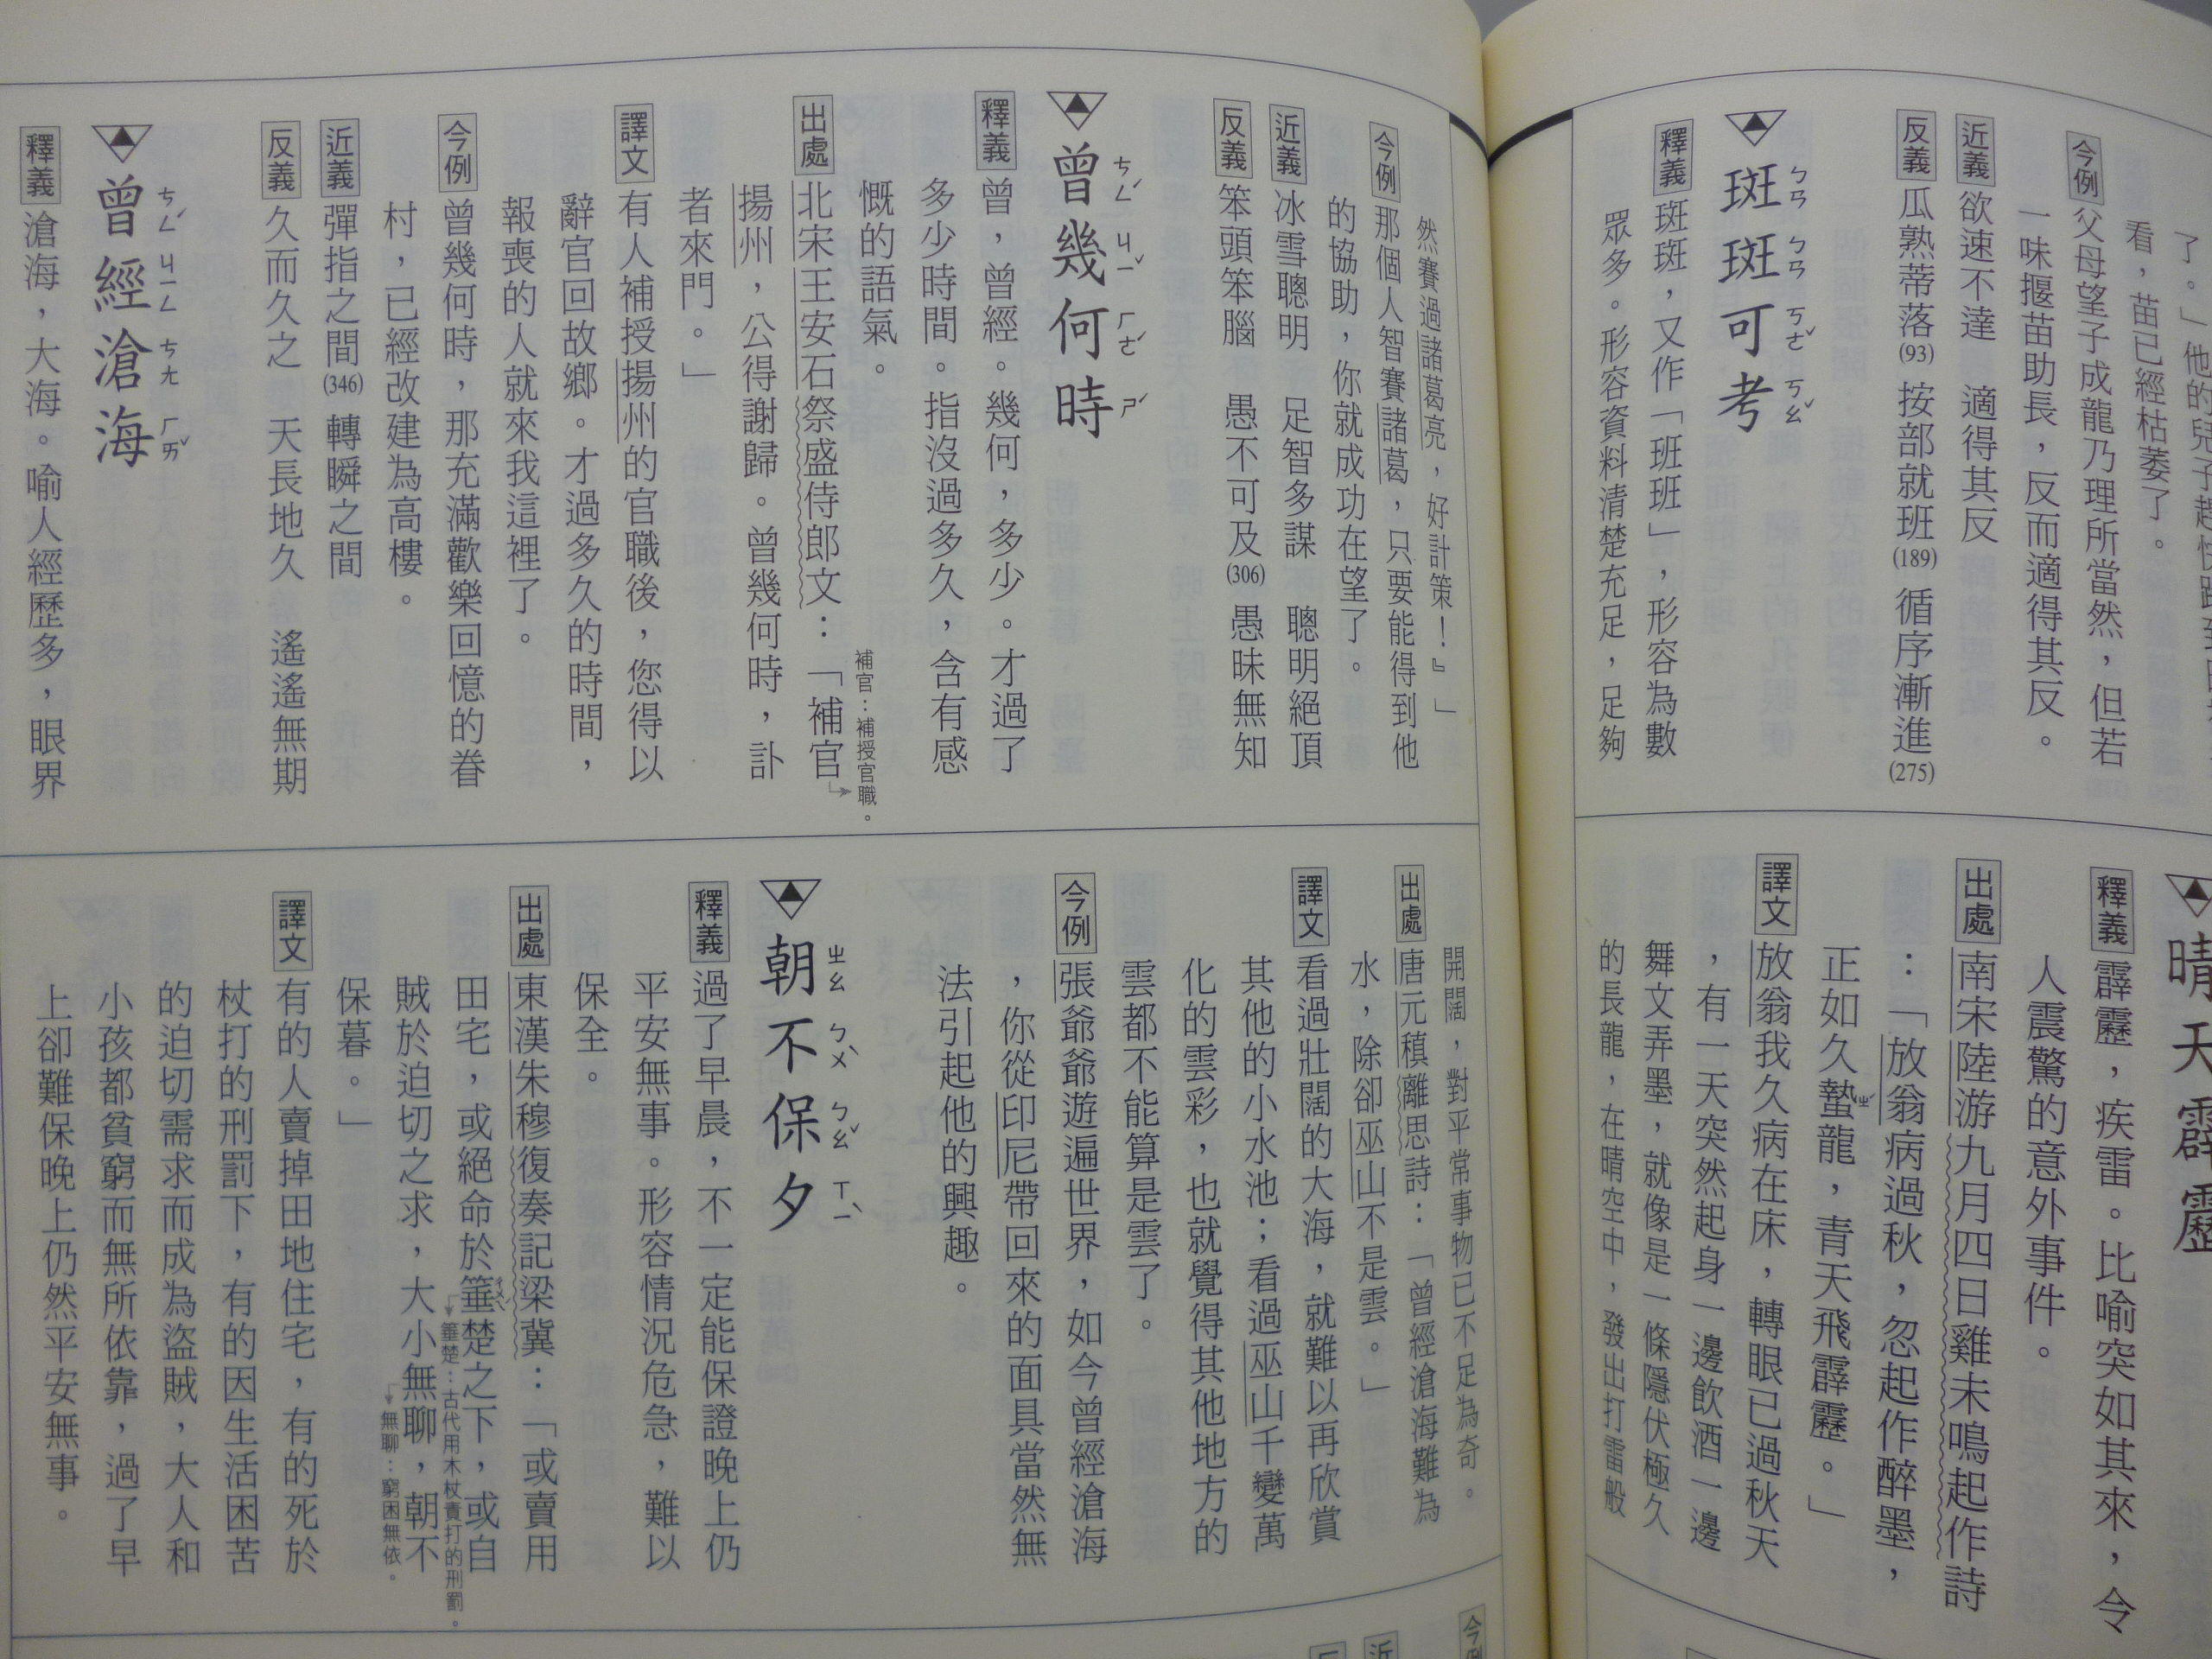 了。」他的兒子趕快跑到
看，苗已經枯萎了。
今例 父母望子成龍乃理所當然，但若
一味揠苗助長，反而適得其反。
近義 欲速不達　適得其反
反義 瓜熟蒂落(93) 按部就班(189) 循序漸進(275)
斑ㄅㄢ斑ㄅㄢ可ㄎㄜˇ考ㄎㄠˇ
釋義 斑斑，又作「班班」，形容為數
眾多。形容資料清楚充足，足夠
晴天霹靂
釋義 霹靂，疾雷。比喻突如其來，令
人震驚的意外事件。
出處 南宋陸游九月四日雞未鳴起作詩
：「放翁病過秋，忽起作醉墨，
正如久蟄ㄓˊ龍，青天飛霹靂。」
譯文 放翁我久病在床，轉眼已過秋天
，有一天突然起身一邊飲酒一邊
舞文弄墨，就像是一條隱伏極久
的長龍，在晴空中，發出打雷般
然賽過諸葛亮，好計策！』」
今例 那個人智賽諸葛，只要能得到他
的協助，你就成功在望了。
近義 冰雪聰明　足智多謀　聰明絕頂
反義 笨頭笨腦　愚不可及(306) 愚昧無知
曾ㄘㄥˊ幾ㄐㄧˇ何ㄏㄜˊ時ㄕˊ
釋義 曾，曾經。幾何，多少。才過了
多少時間。指沒過多久，含有感
慨的語氣。
補官：補授官職。
出處 北宋王安石祭盛侍郎文：「補官
揚州，公得謝歸。曾幾何時，訃
者來門。」
譯文 有人補授揚州的官職後，您得以
辭官回故鄉。才過多久的時間，
報喪的人就來我這裡了。
今例 曾幾何時，那充滿歡樂回憶的眷
村，已經改建為高樓。
近義 彈指之間(346) 轉瞬之間
反義 久而久之　天長地久　遙遙無期
曾ㄘㄥˊ經ㄐㄧㄥ滄ㄘㄤ海ㄏㄞˇ
釋義 滄海，大海。喻人經歷多，眼界
開闊，對平常事物已不足為奇。
出處 唐元稹離思詩：「曾經滄海難為
水，除卻巫山不是雲。」
譯文 看過壯闊的大海，就難以再欣賞
其他的小水池；看過巫山千變萬
化的雲彩，也就覺得其他地方的
雲都不能算是雲了。
今例 張爺爺遊遍世界，如今曾經滄海
，你從印尼帶回來的面具當然無
法引起他的興趣。
朝ㄓㄠ不ㄅㄨˋ保ㄅㄠˇ夕ㄒㄧˋ
釋義 過了早晨，不一定能保證晚上仍
平安無事。形容情況危急，難以
保全。
出處 東漢朱穆復奏記梁冀：「或賣用
田宅，或絕命於箠ㄔㄨㄟˊ楚之下，或自
箠楚：古代用木杖責打的刑罰。
賊於迫切之求，大小無聊，朝不
無聊：窮困無依。
保暮。」
譯文 有的人賣掉田地住宅，有的死於
杖打的刑罰下，有的因生活困苦
的迫切需求而成為盜賊，大人和
小孩都貧窮而無所依靠，過了早
上卻難保晚上仍然平安無事。
今例
近